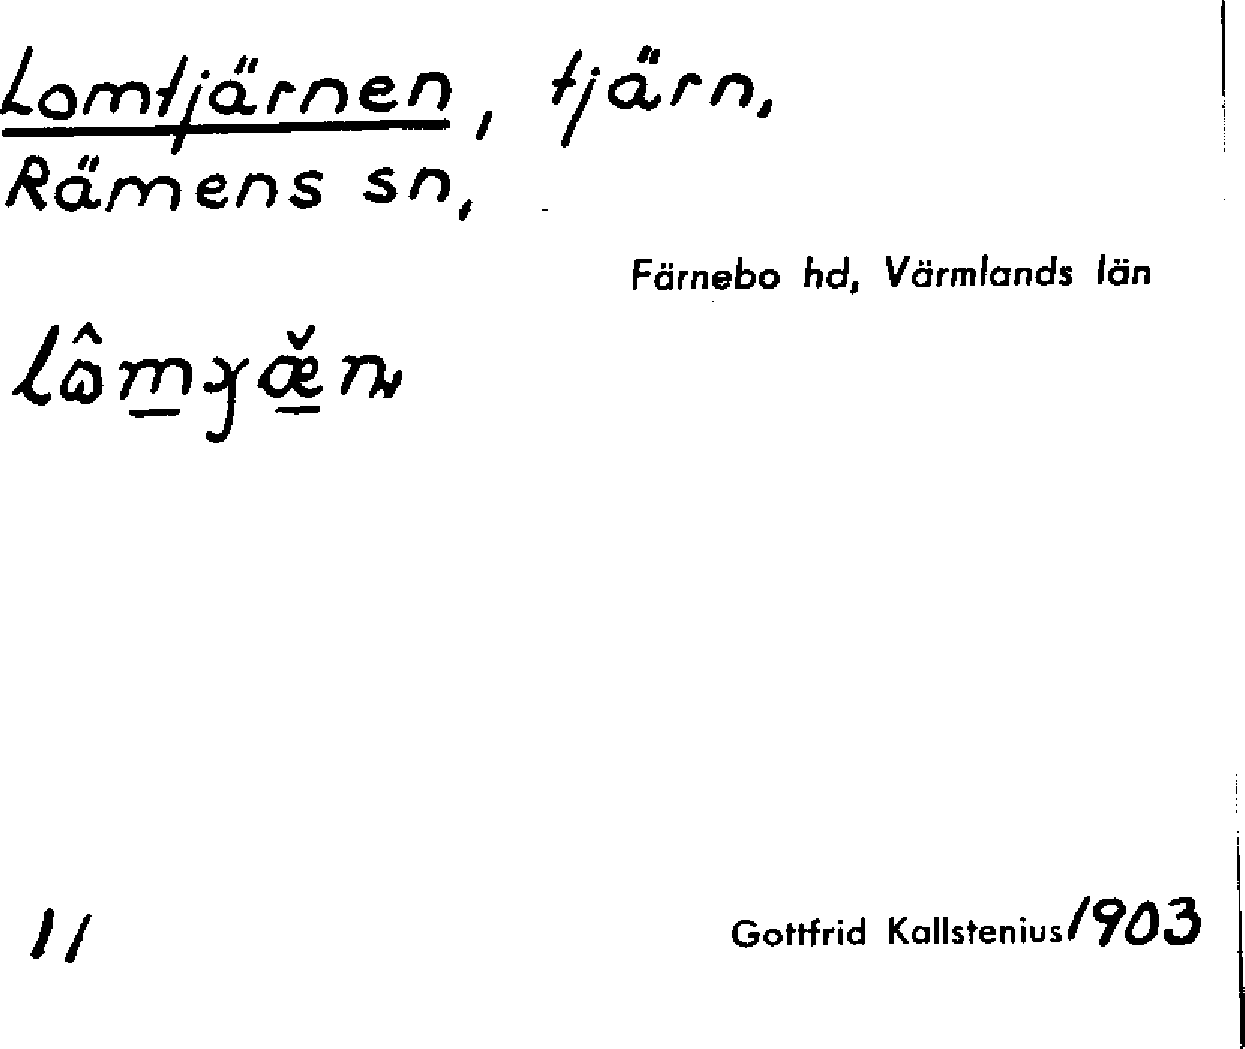 Lomtjärnen, tjärn,
Rämens sn,
Färnebo hd, Värmlands län
11
Gottfrid Kallstenius 1903